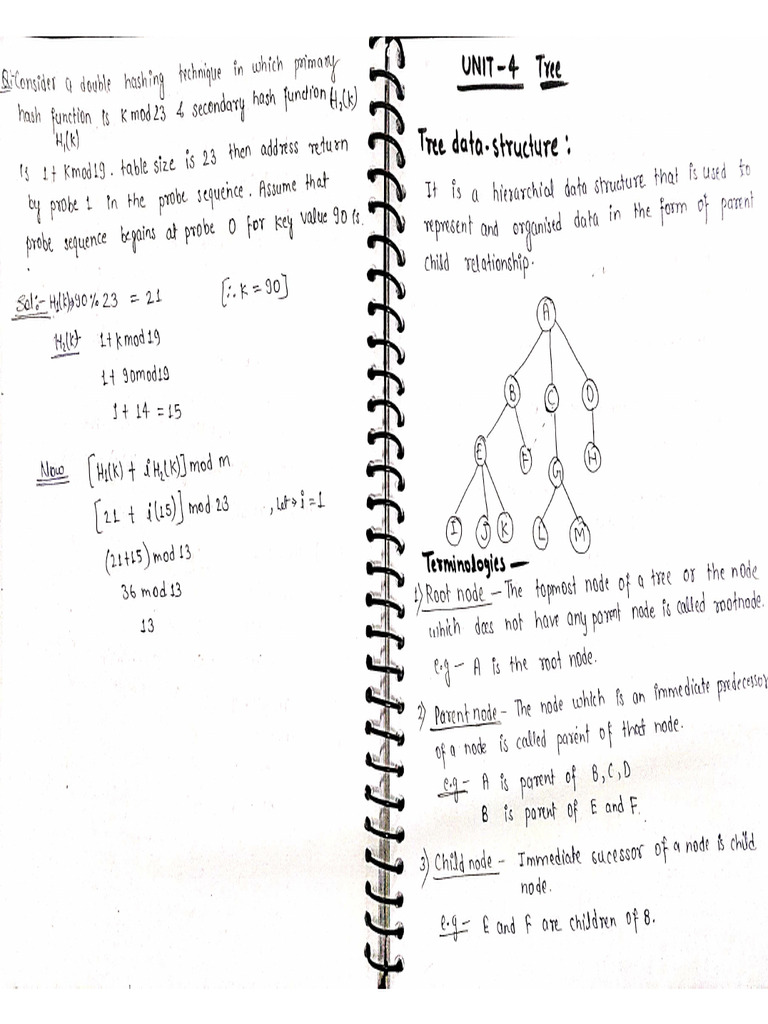 Q:- Consider a double hashing technique in which primary
hash function is K mod 23 & secondary hash function H₂(k)
H₁(k)
is 1+ Kmod19. table size is 23 then address return
by probe 1 in the probe sequence. Assume that
probe sequence begains at probe 0 for key value 90 is.
Sol:- H₁(k)⇒90%23 = 21 [∴ K = 90]
H₂(k) 1+kmod19
1+ 90mod19
1+14 =15
Now [H₁(k) + iH₂(k)] mod m
[21 + i(15)] mod 23 , Let→ i=1
(21+15) mod 13
36 mod 13
13
UNIT-4 Tree
Tree data-structure:
It is a hierarchial data structure that is used to
represent and organised data in the form of parent
child relationship.
A
B C D
E F G H
I J K L M
Terminologies —
1) Root node — The topmost node of a tree or the node
which does not have any parent node is called rootnode.
e.g — A is the root node.
2) Parent node — The node which is an immediate predecessor
of a node is called parent of that node.
e.g — A is parent of B,C,D
B is parent of E and F.
3) Child node — Immediate sucessor of a node is child
node.
e.g — E and F are children of B.